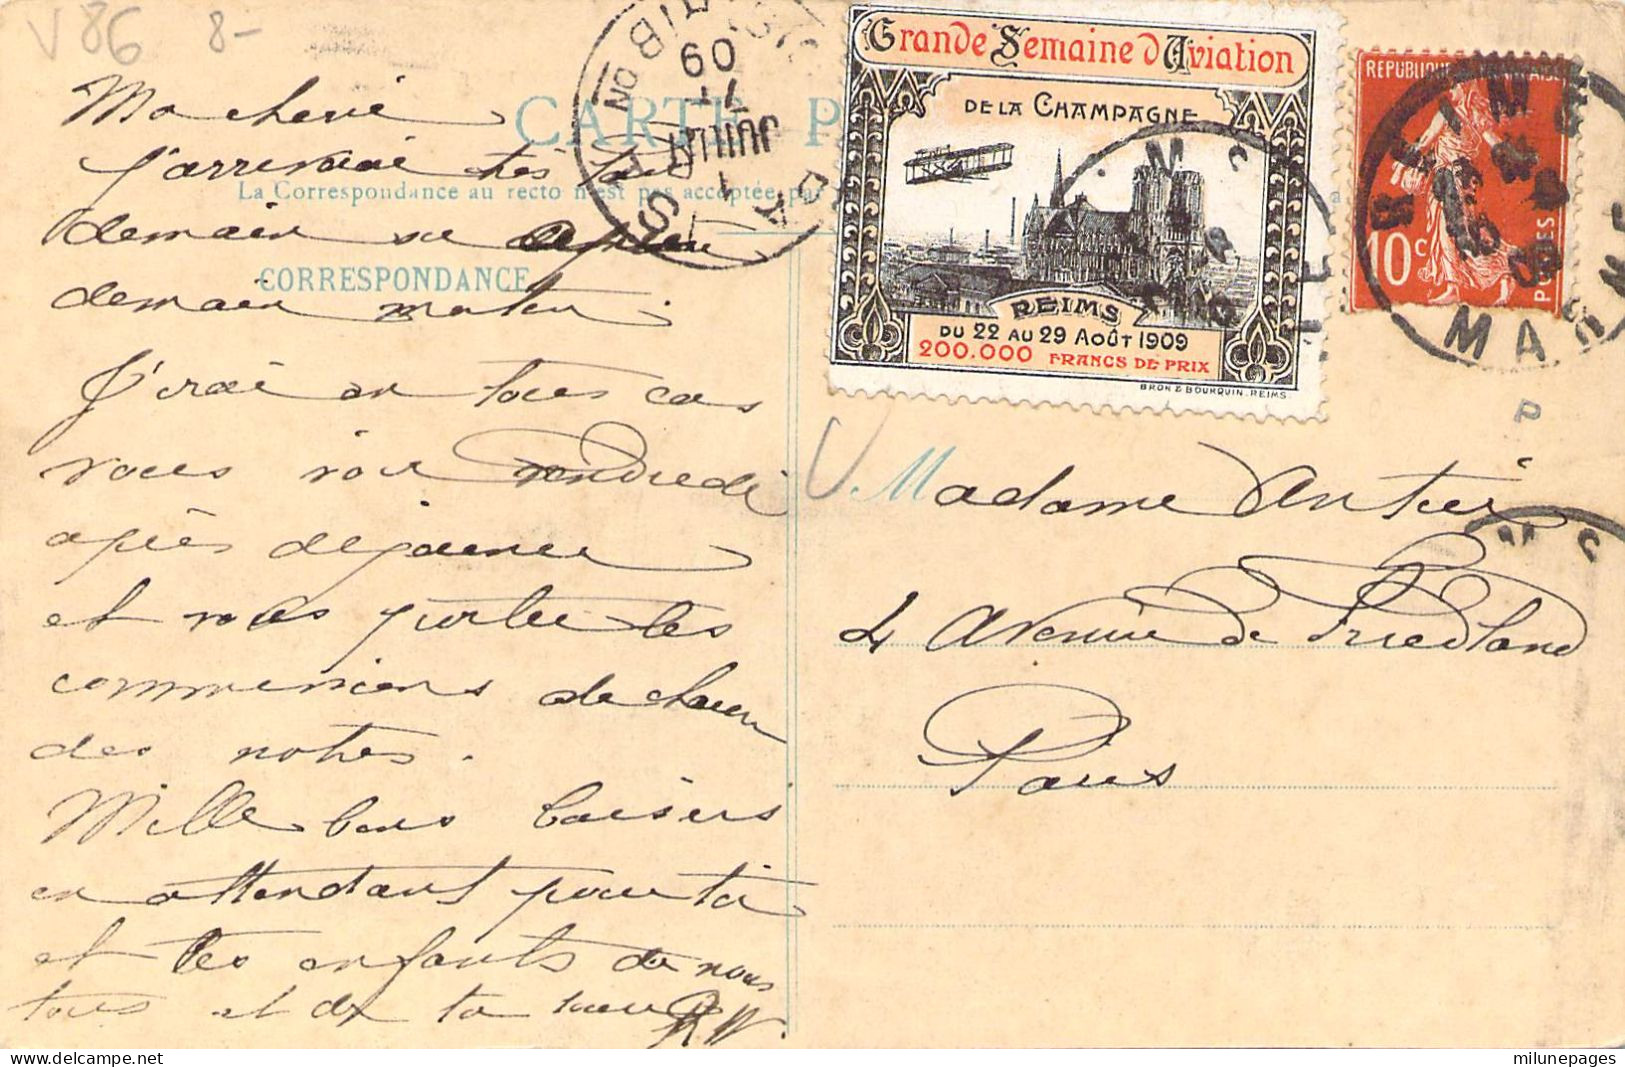 V86 8-
CARTE P
La Correspondance au recto n'est pas acceptée par
CORRESPONDANCE
Ma cherie
J'arriverai très tard
demain ou après
demain matin.
J'irai en tous cas
vous voir vendredi
après déjeuner
et nous
commissions de chacun
des notres.
Mille bons baisers
en attendant pour toi
et tes enfants de nous
tous et de ta
JUILLET
09
Grande Semaine d'Aviation
DE LA CHAMPAGNE
REIMS
DU 22 AU 29 AOÛT 1909
200.000 FRANCS DE PRIX
BRON & BOURQUIN. REIMS.
RÉPUBLIQUE FRANÇAISE
10c
POSTES
REIMS
MARNE
P
Madame Antier
4 Avenue de Friedland
Paris
milunepages